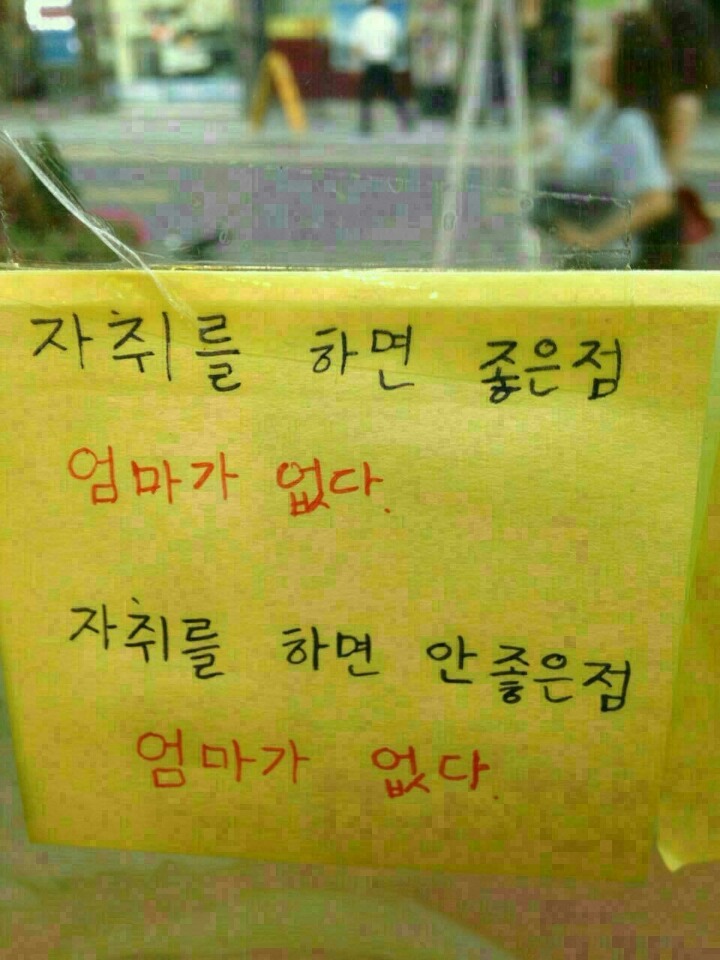 자취를 하면 좋은점
엄마가 없다.
자취를 하면 안좋은점
엄마가 없다.